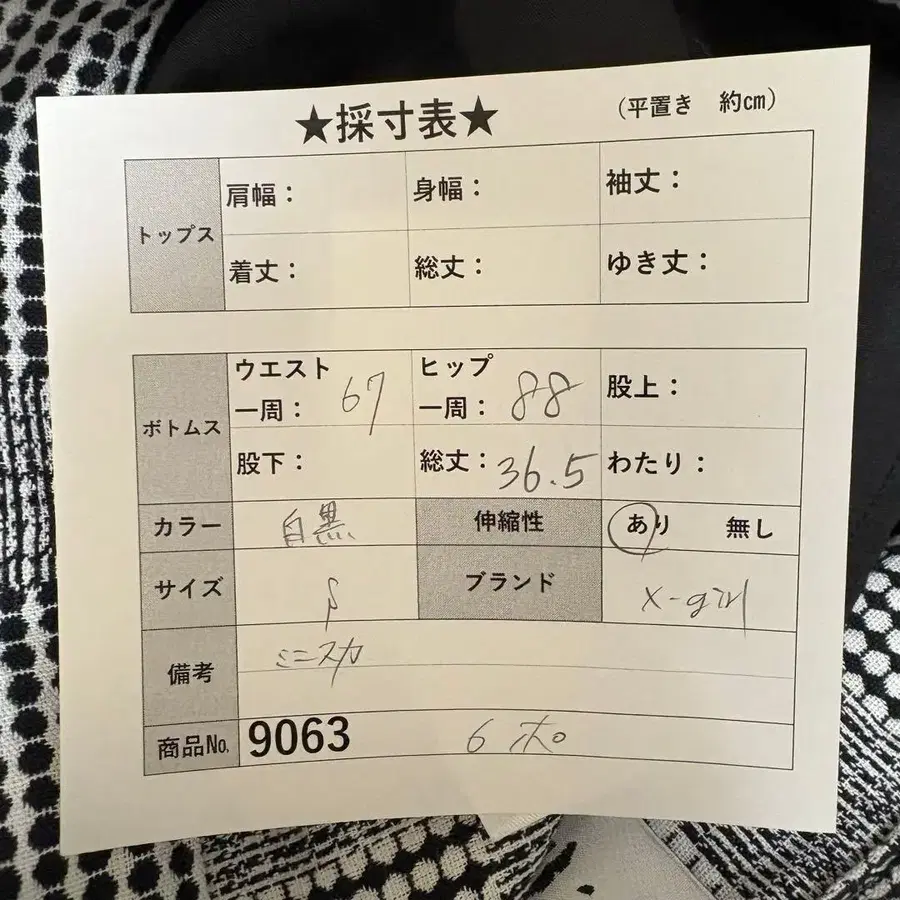 ★採寸表★ (平置き 約cm)
トップス 肩幅： 身幅： 袖丈：
着丈： 総丈： ゆき丈：
ボトムス ウエスト一周： 67 ヒップ一周： 88 股上：
股下： 総丈： 36.5 わたり：
カラー 白黒 伸縮性 あり 無し
サイズ S ブランド X-girl
備考 ミニスカ
商品No. 9063 6 ポ